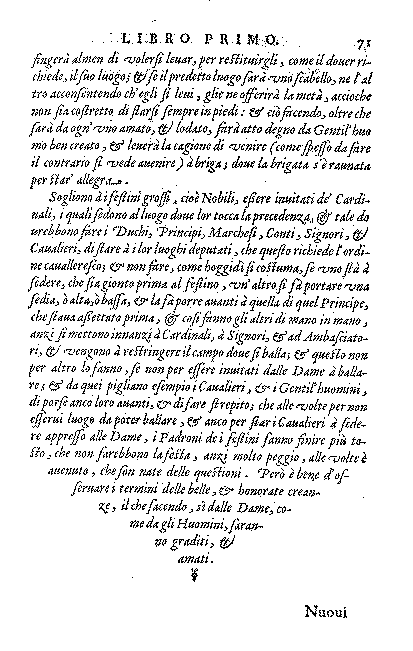 LIBRO PRIMO. 71
fingerà almen di volersi leuar, per restituirgli, come il douer ri-
chiede, il suo luogo; & se il predetto luogo sarà vno scabello, ne l'al
tro acconsentendo ch'egli si leui, glie ne offerirà la metà, accioche
non sia costretto di starsi sempre in piedi: & ciò facendo, oltre che
sarà da ogn'vno amato, & lodato, farà atto degno da Gentil'huo
mo ben creato, & leuerà la cagione di venire (come spesso da fare
il contrario si vede auenire) à briga; doue la brigata s'è raunata
per star' allegra.
Sogliono à i festini grossi, cioè Nobili, essere inuitati de' Cardi-
nali, i quali sedono al luogo doue lor tocca la precedenza, & tale do
urebbono fare i Duchi, Principi, Marchesi, Conti, Signori, &
Caualieri, di stare à i lor luoghi deputati, che questo richiede l'ordi-
ne caualleresco; & non fare, come hoggidì si costuma, se vno stà à
sedere, che sia gionto prima al festino, vn'altro si fà portare vna
sedia, ò alta, ò bassa, & la fà porre auanti à quella di quel Principe,
che staua assettato prima, & così fanno gli altri di mano in mano,
anzi si mettono innanzi à Cardinali, à Signori, & ad Ambasciato-
ri, & vengono à restringere il campo doue si balla; & questo non
per altro lo fanno, se non per essere inuitati dalle Dame à balla-
re; & da quei pigliano esempio i Caualieri, & i Gentil'huomini,
di porse anco loro auanti, & di fare strepito; che alle volte per non
esserui luogo da poter ballare, & anco per star i Caualieri à sede-
re appresso alle Dame, i Padroni de i festini fanno finire più to-
sto, che non farebbono la festa, anzi molto peggio, alle volte è
auenuto, che son nate delle questioni. Però è bene d'os-
seruare i termini delle belle, & honorate crean-
ze, il che facendo, sì dalle Dame, co-
me da gli Huomini, saran-
no graditi, &
amati.
Nuoui